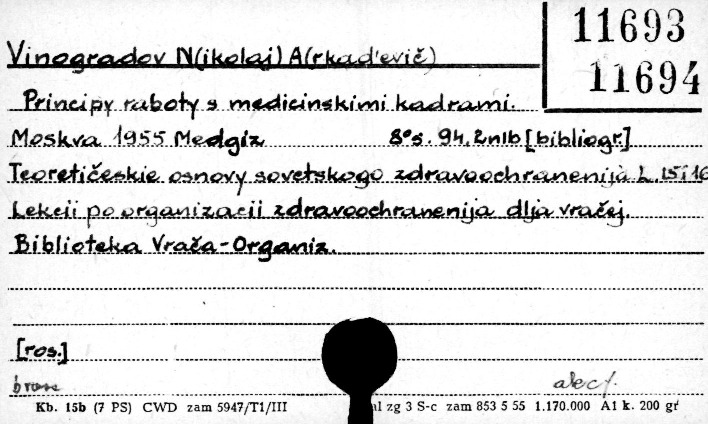 11693
11694
Vinogradov N(ikolaj) A(rkad'evič)
Principy raboty s medicinskimi kadrami.
Moskva 1955 Medgiz 8° s. 94, 2nlb [bibliogr.]
Teoretičeskie osnovy sovetskogo zdravoochranenija L. 15i16
Lekcii po organizacii zdravoochranenija dlja vračej.
Biblioteka Vrača-Organiz.
[ros.]
Kb. 15b (7 PS) CWD zam 5947/T1/III al zg 3 S-c zam 853 5 55 1.170.000 A1 k. 200 gr